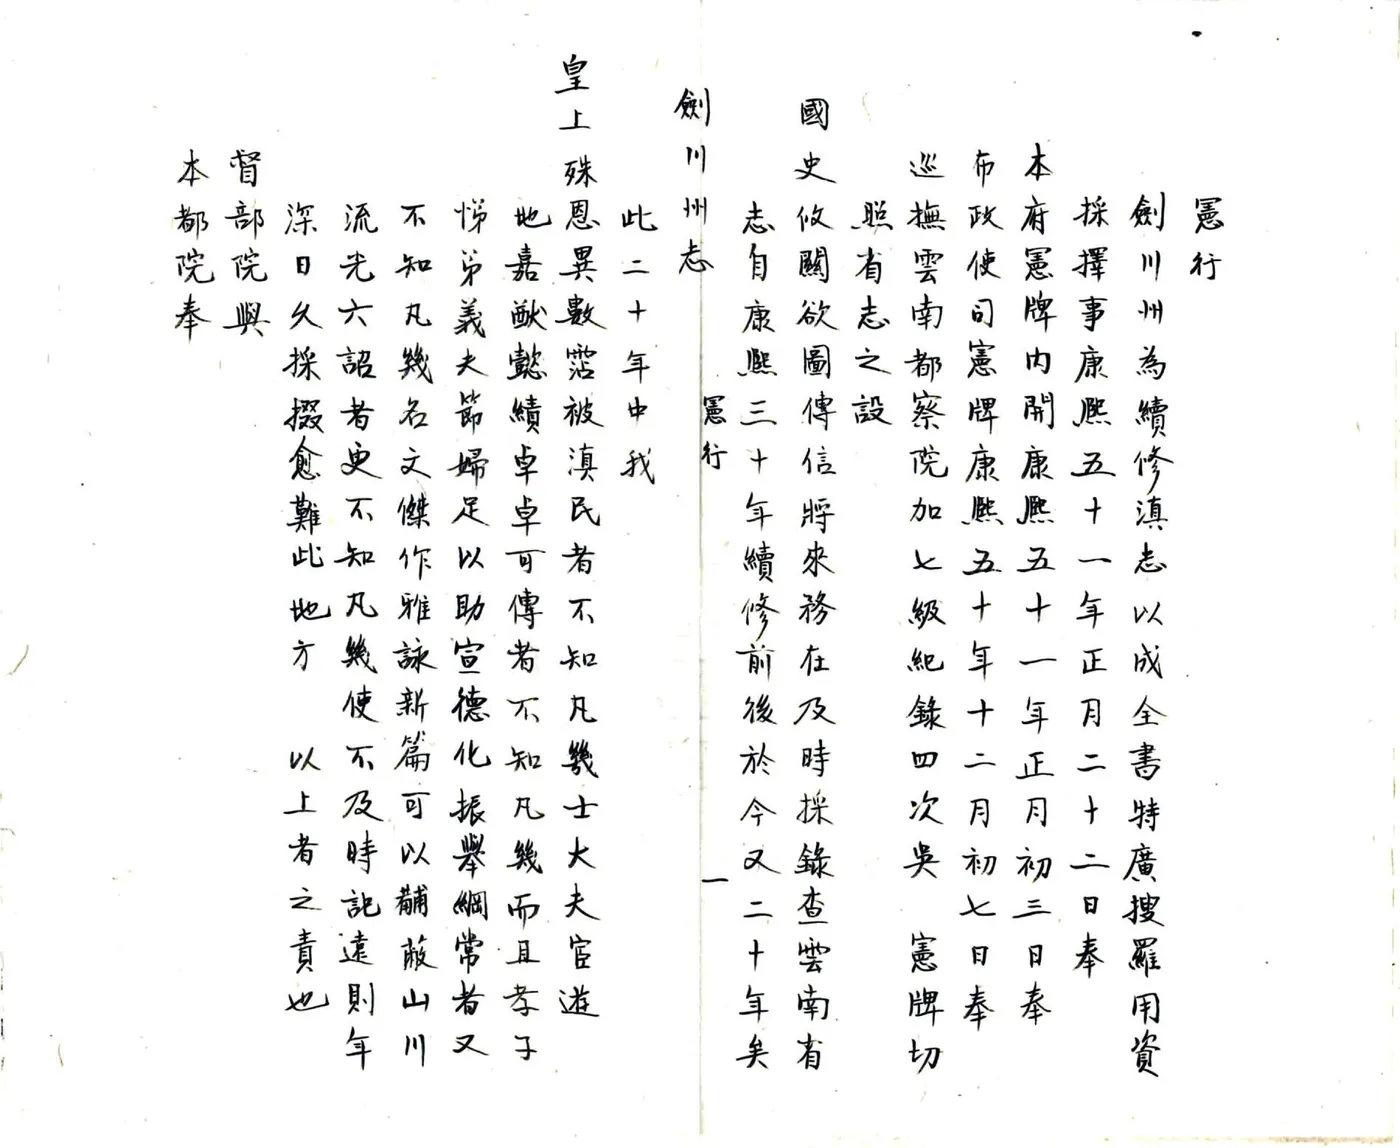 憲行
劍川州為續修滇志以成全書特廣搜羅用資
採擇事康熙五十一年正月二十二日奉
本府憲牌內開康熙五十一年正月初三日奉
布政使司憲牌康熙五十年十二月初七日奉
巡撫雲南都察院加七級紀錄四次吳　憲牌切
照省志之設
國史攸關欲圖傳信將來務在及時採錄查雲南省
志自康熙三十年續修前後於今又二十年矣
劍川州志　憲行　一
此二十年中我
皇上殊恩異數霑被滇民者不知凡幾士大夫宦遊
地嘉猷懿績卓卓可傳者不知凡幾而且孝子
悌弟義夫節婦足以助宣德化振舉綱常者又
不知凡幾名文傑作雅詠新篇可以黼黻山川
流光六詔者更不知凡幾使不及時記遠則年
深日久採掇愈難此地方　以上者之責也
督部院與
本都院奉